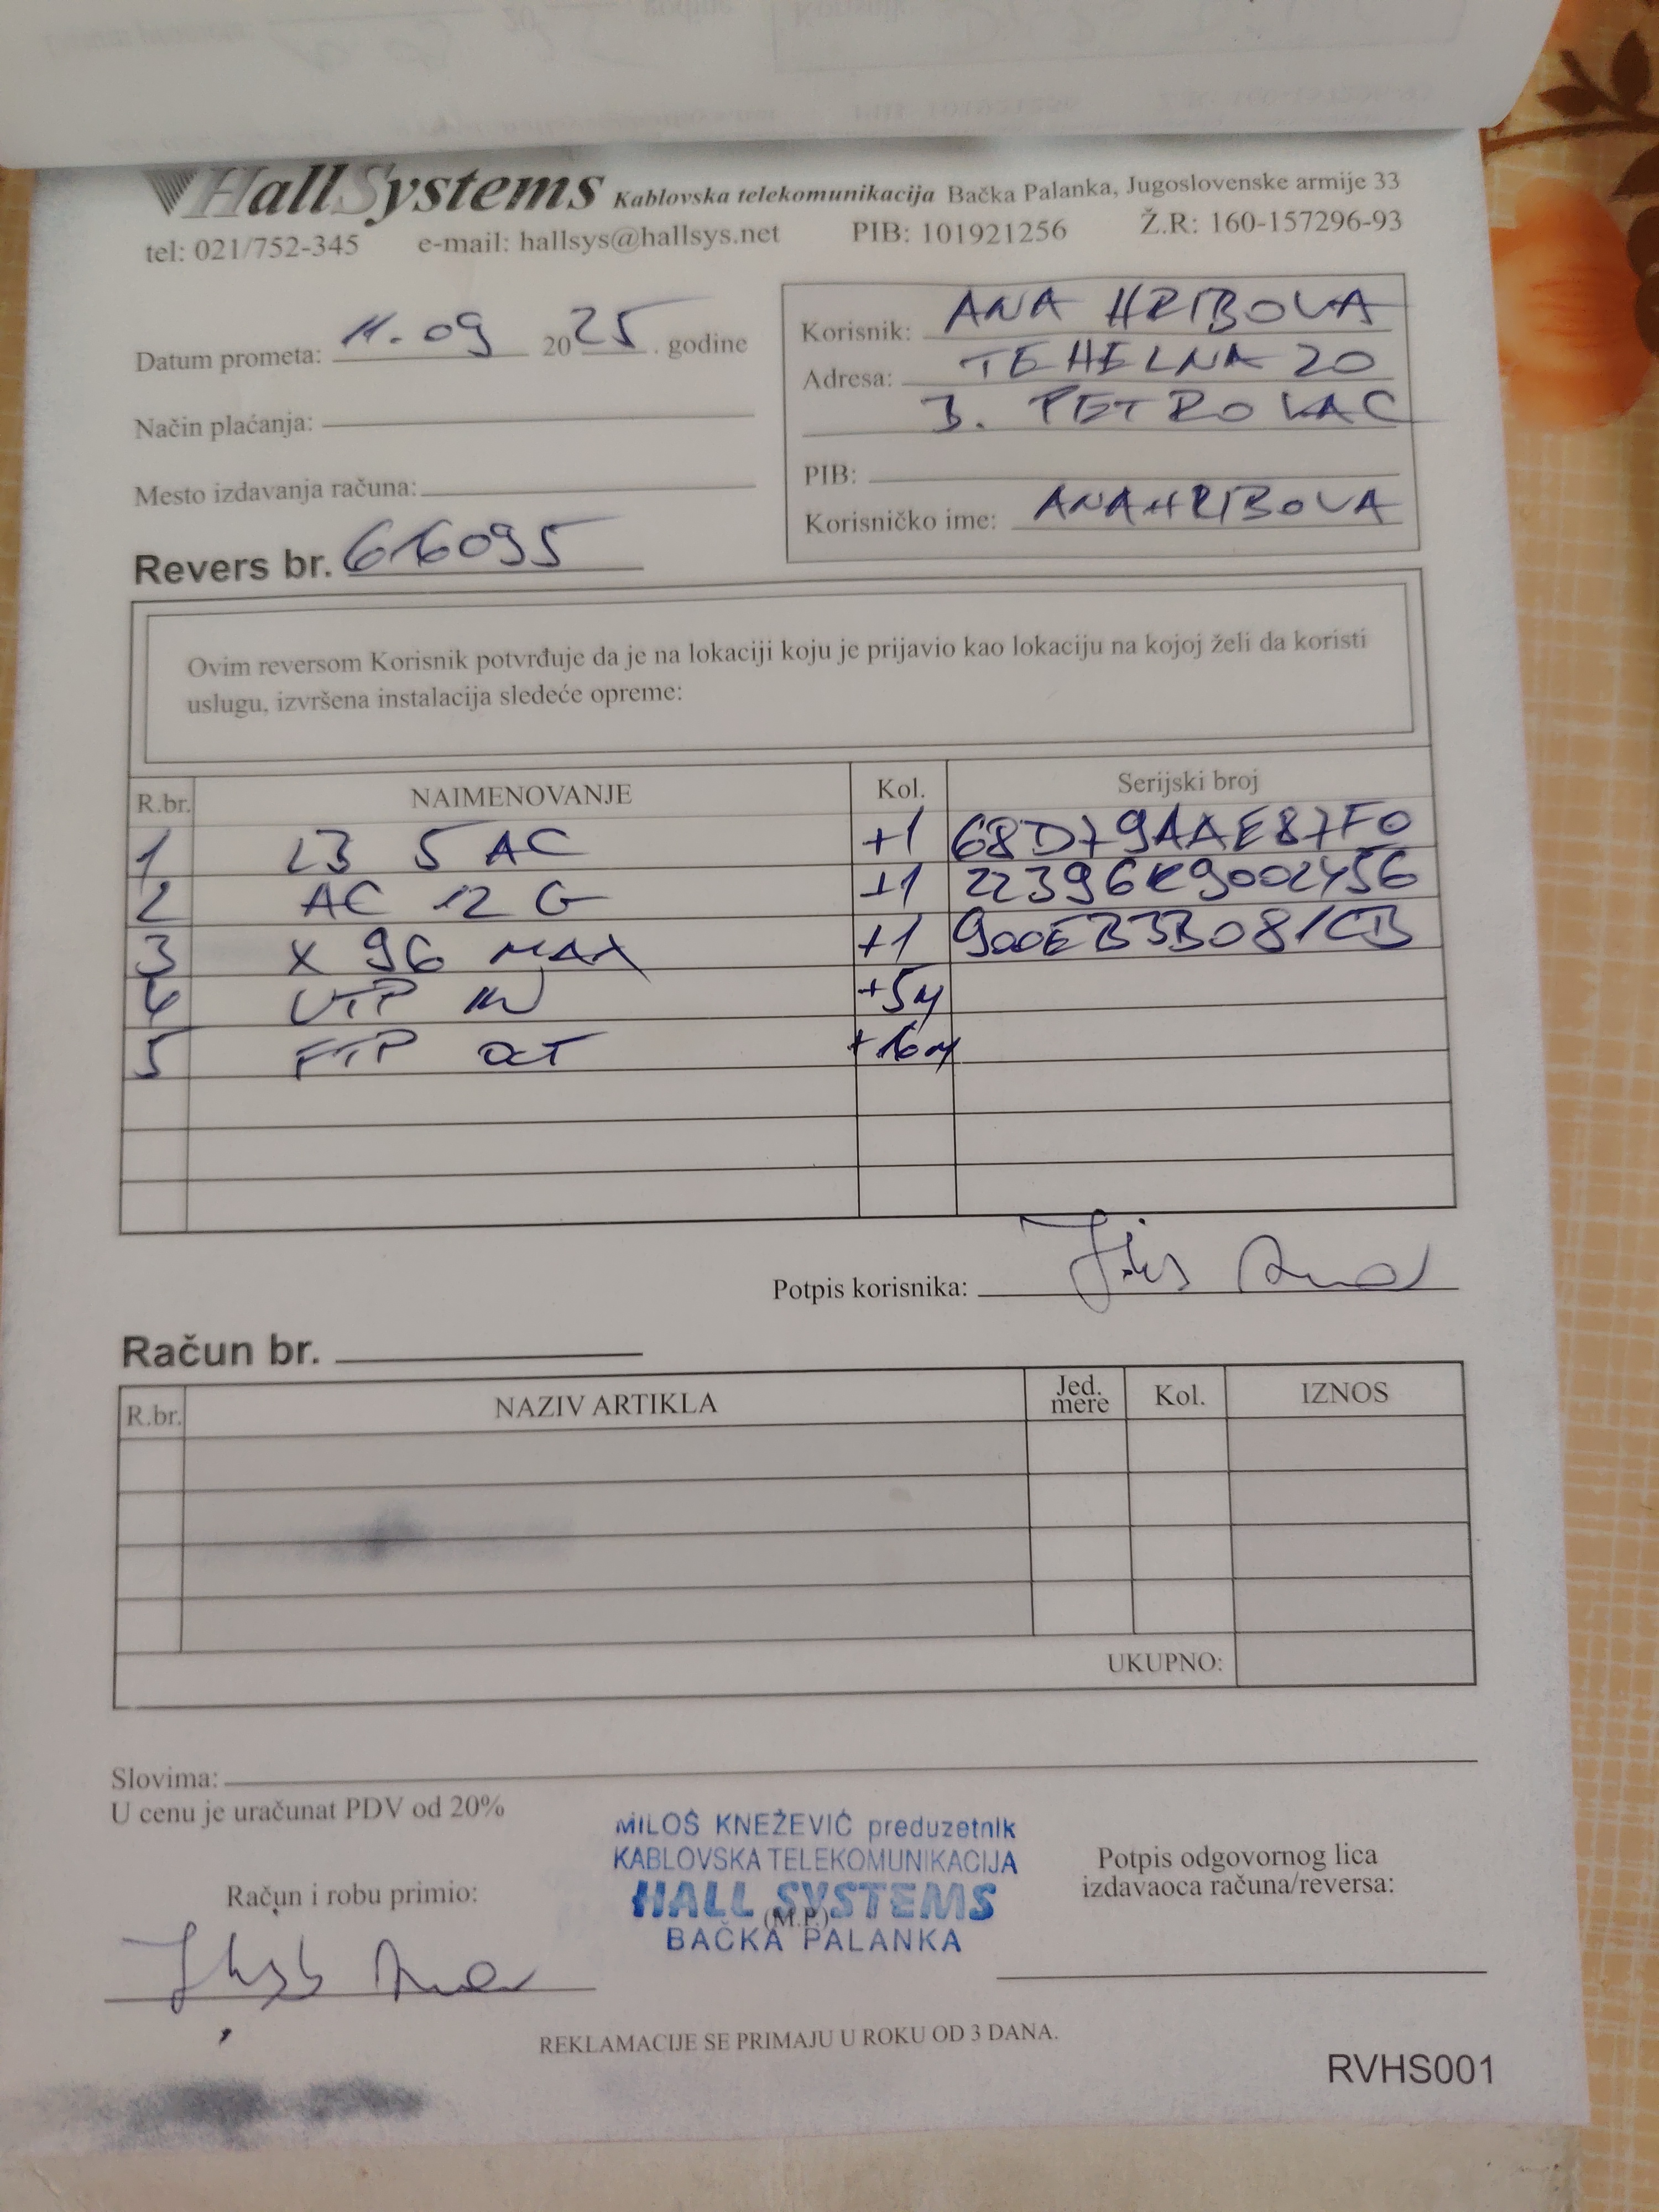 HallSystems Kablovska telekomunikacija Bačka Palanka, Jugoslovenske armije 33
tel: 021/752-345 e-mail: hallsys@hallsys.net PIB: 101921256 Ž.R: 160-157296-93
Datum prometa: 11.09 2025. godine
Način plaćanja:
Mesto izdavanja računa:
Revers br. 66095
Korisnik: ANA HRIBOVA
Adresa: TEHELNA 20
B. PETROVAC
PIB:
Korisničko ime: ANAHRIBOVA
Ovim reversom Korisnik potvrđuje da je na lokaciji koju je prijavio kao lokaciju na kojoj želi da koristi
uslugu, izvršena instalacija sledeće opreme:
R.br. NAIMENOVANJE Kol. Serijski broj
1 L3 5 AC +1 68D79AAE87F0
2 AC 12 G +1 22396K9002456
3 X 96 MAX +1 900EB3B081CB
4 UTP IN +5m
5 FTP OUT +16m
Potpis korisnika:
Račun br.
R.br. NAZIV ARTIKLA Jed. mere Kol. IZNOS
UKUPNO:
Slovima:
U cenu je uračunat PDV od 20%
MILOŠ KNEŽEVIĆ preduzetnik
KABLOVSKA TELEKOMUNIKACIJA
HALL SYSTEMS
(M.P.)
BAČKA PALANKA
Račun i robu primio:
Potpis odgovornog lica
izdavaoca računa/reversa:
REKLAMACIJE SE PRIMAJU U ROKU OD 3 DANA.
RVHS001